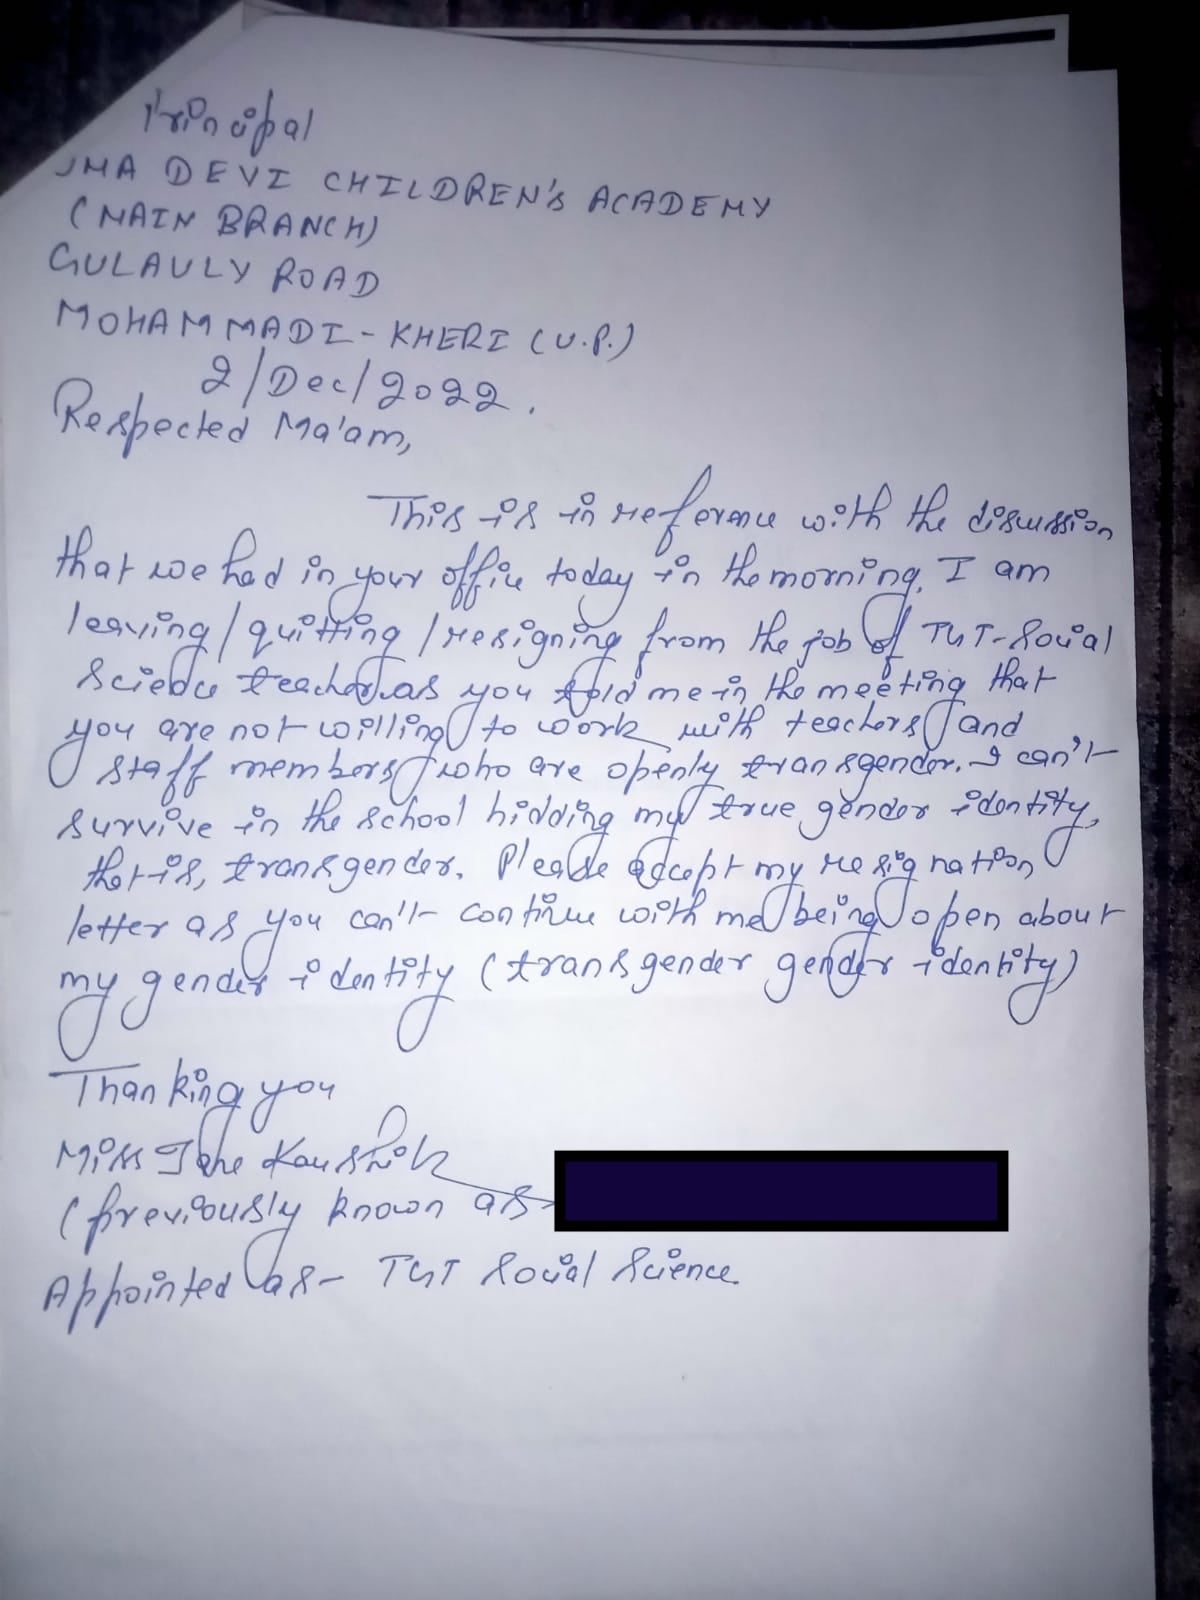 Principal
UMA DEVI CHILDREN'S ACADEMY
(MAIN BRANCH)
GULAULY ROAD
MOHAMMADI-KHERI (U.P.)
2/Dec/2022.
Respected Ma'am,
This is in reference with the discussion
that we had in your office today in the morning. I am
leaving/quitting/resigning from the job of TGT-Social
Science teacher as you told me in the meeting that
you are not willing to work with teachers and
staff members who are openly transgender. I can't
survive in the school hidding my true gender identity,
that is, transgender. Please accept my resignation
letter as you can't continue with me being open about
my gender identity (transgender gender identity)
Thanking you
Miss Jane Kaushik
(previously known as
Appointed as- TGT Social Science.